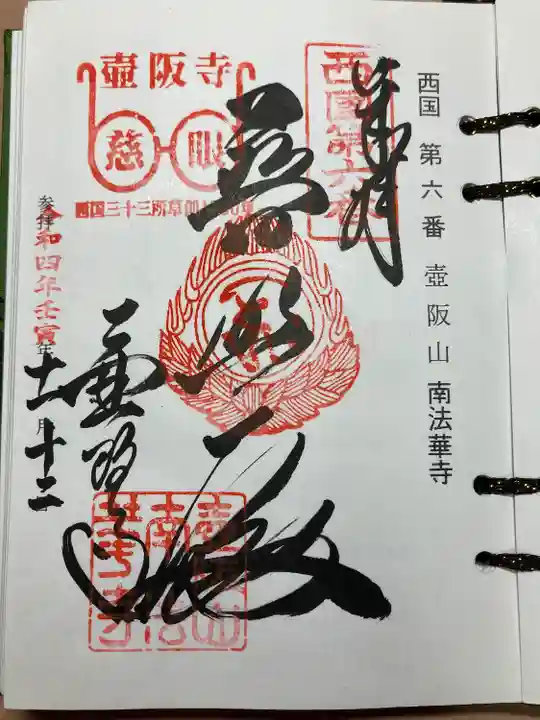 西国 第六番 壺阪山 南法華寺
奉拝
西國第六番
普照殿
壺阪寺
慈眼
西国三十三所草創1300年
壺阪寺
壺阪山南法華寺
参拝 令和四年壬寅年 十一月 十二